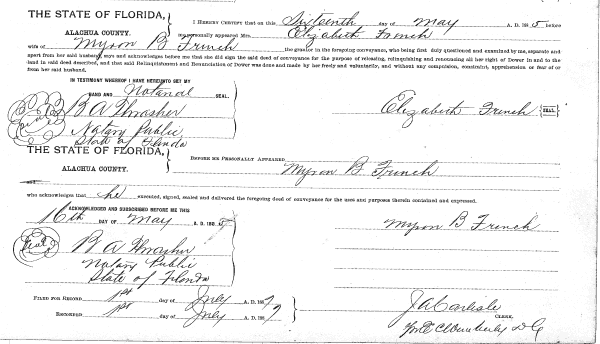 THE STATE OF FLORIDA,
ALACHUA COUNTY.
I HEREBY CERTIFY that on this Sixteenth day of May A. D. 1885 before
me personally appeared Mrs. Elizabeth French
wife of Myron B French the grantor in the foregoing conveyance, who being first duly questioned and examined by me, separate and
apart from her said husband, says and acknowledges before me that she did sign the said deed of conveyance for the purpose of releasing, relinquishing and renouncing all her right of Dower in and to the
land in said deed described, and that said Relinquishment and Renunciation of Dower was done and made by her freely and voluntarily, and without any compulsion, constraint, apprehension or fear of or
from her said husband.
IN TESTIMONY WHEREOF I HAVE HEREUNTO SET MY
HAND AND Notarial SEAL.
B A Thrasher
Notary Public
State of Florida
Elizabeth French SEAL.
THE STATE OF FLORIDA,
ALACHUA COUNTY.
BEFORE ME PERSONALLY APPEARED
Myron B. French
and
who acknowledges that he executed, signed, sealed and delivered the foregoing deed of conveyance for the uses and purposes therein contained and expressed.
ACKNOWLEDGED AND SUBSCRIBED BEFORE ME THIS
16th DAY OF May A. D. 188
Myron B French
B A Thrasher
Notary Public
State of Florida
FILED FOR RECORD 1st day of July A. D. 188
RECORDED 1st day of July A. D. 188
J A Carlisle
CLERK.
D C